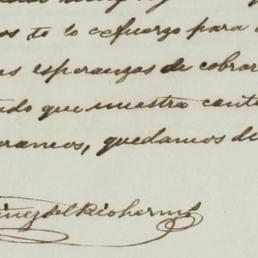 os te lo esfuerzo para
us esperanzas de cobrar
do que nuestra conte
raneos, quedamos de
ñez del Rio herm